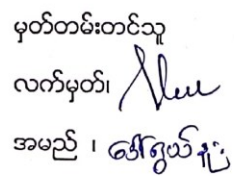 မှတ်တမ်းတင်သူ
လက်မှတ်၊
အမည် ၊ ဒေါ်ရွယ်နုဦး